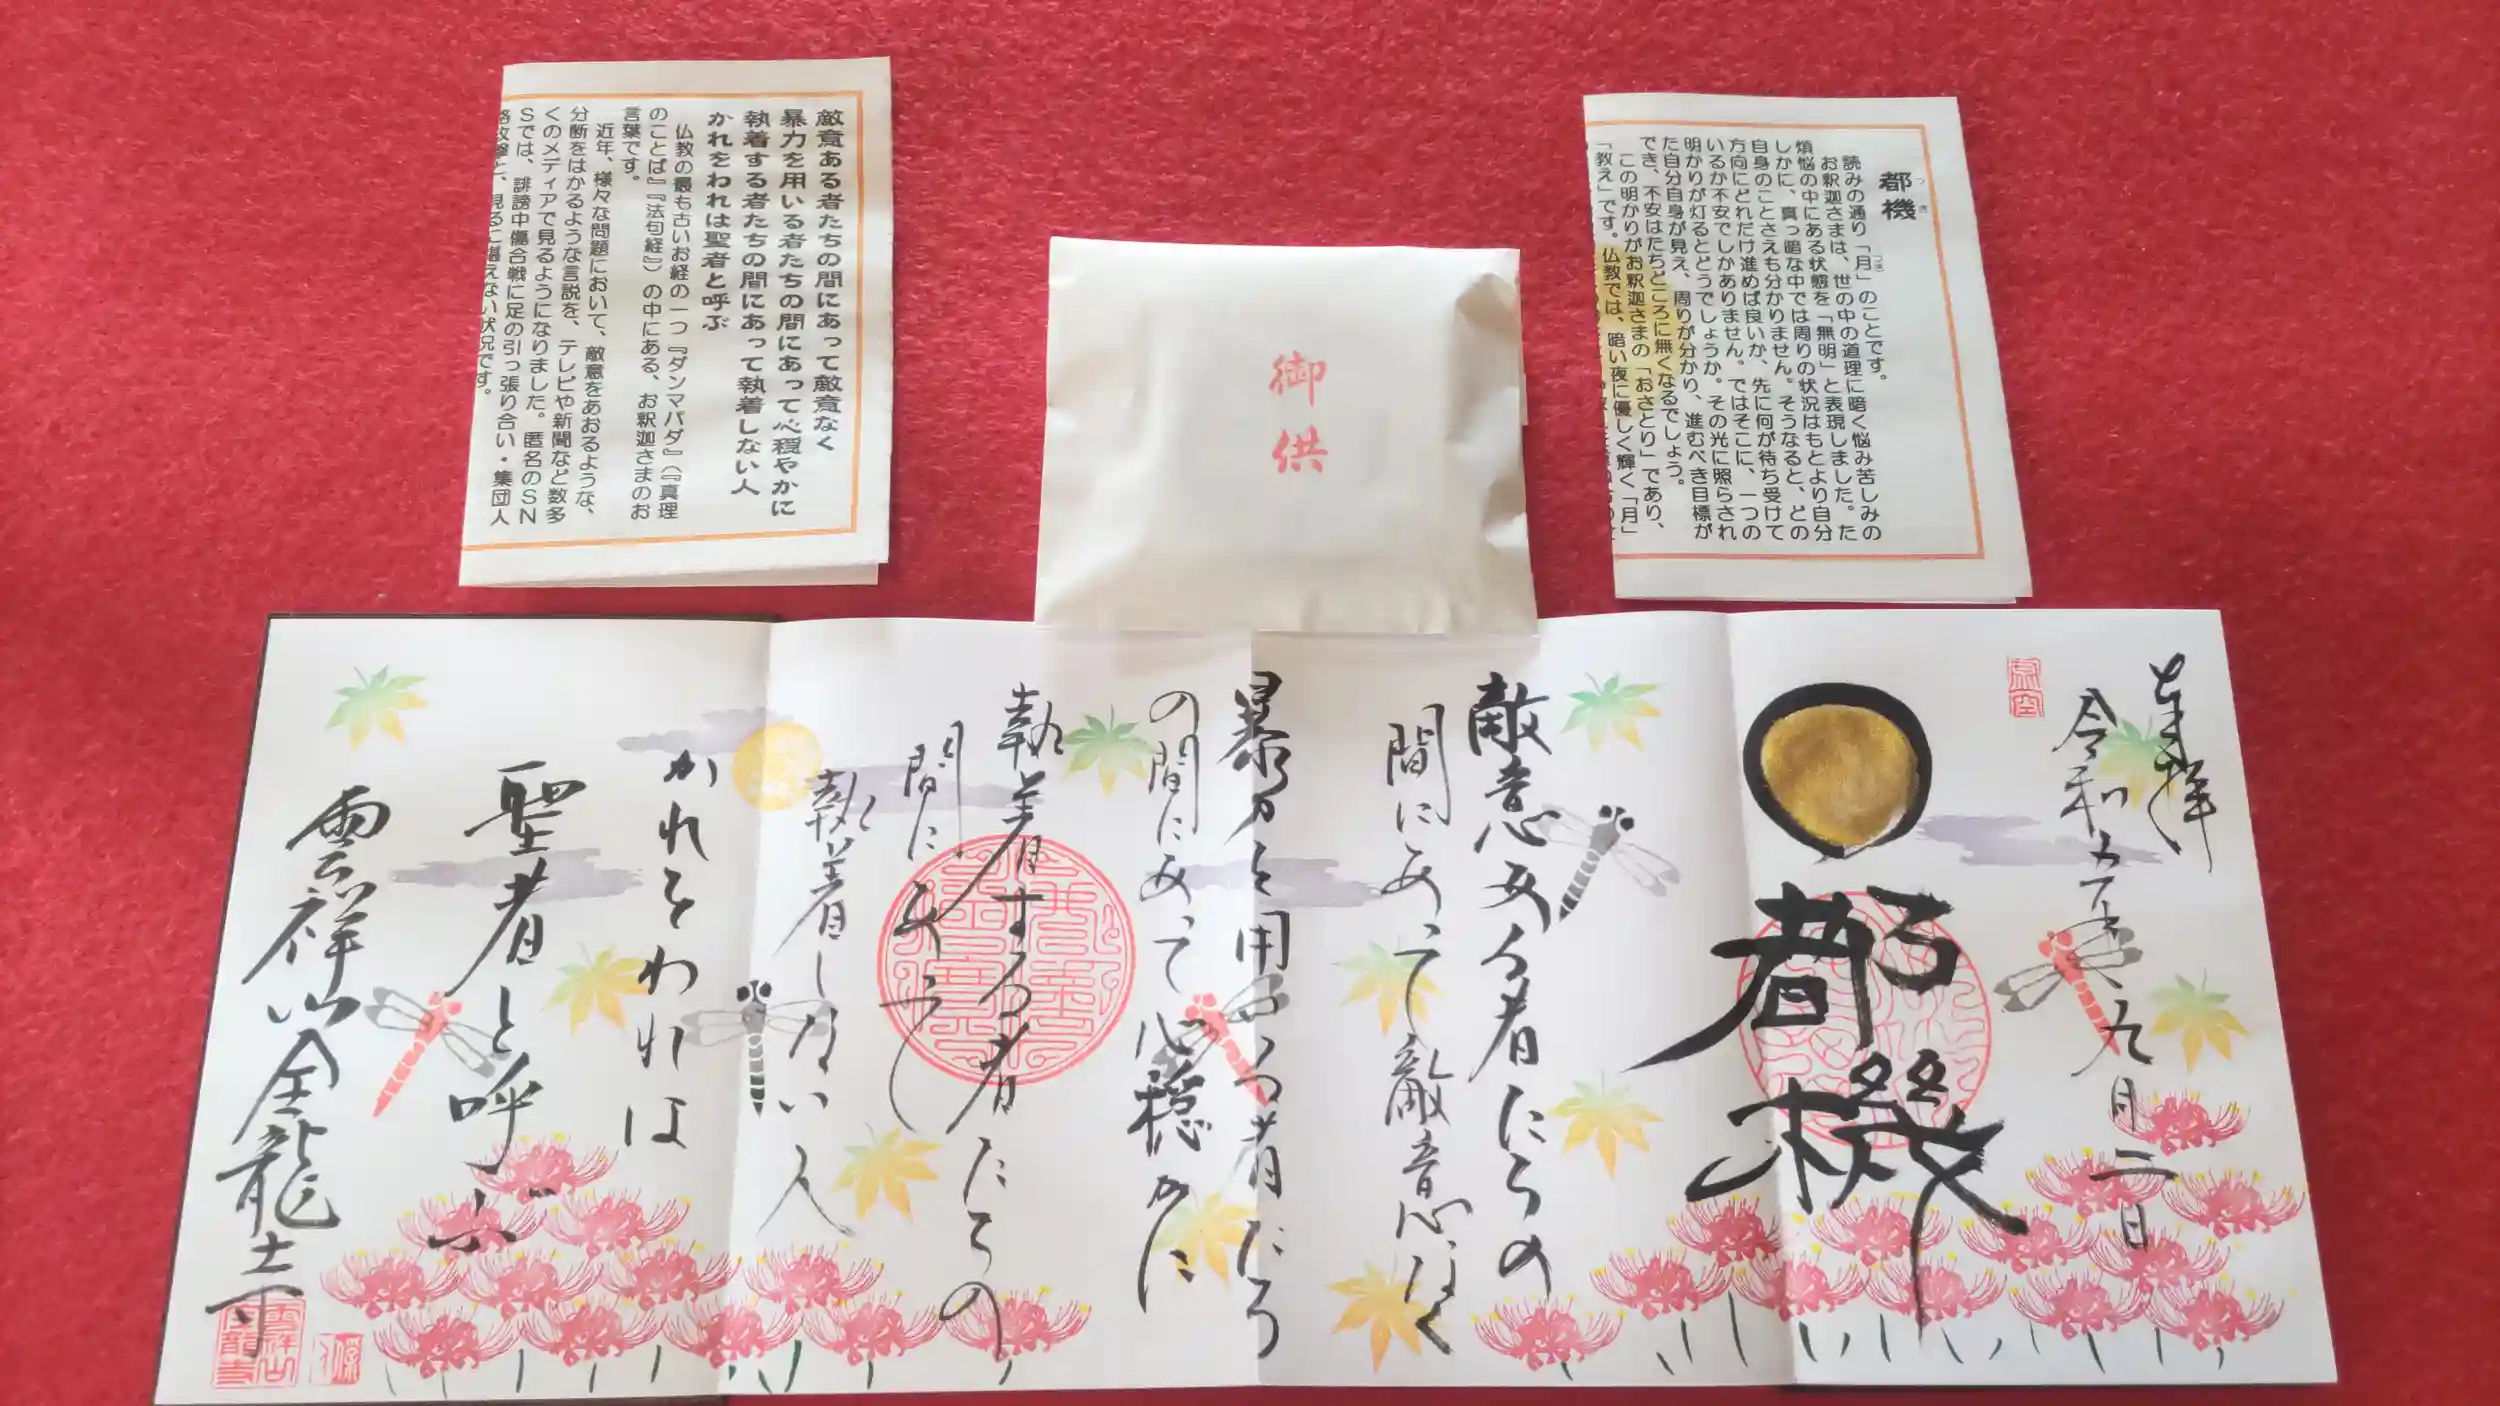 都機
つき
読みの通り「月」のことです。
つき
お釈迦さまは、世の中の道理に暗く悩み苦しみの
煩悩の中にある状態を「無明」と表現しました。た
しかに、真っ暗な中では周りの状況はもとより自分
自身のことさえも分かりません。そうなると、どの
方向にどれだけ進めば良いか、先に何が待ち受けて
いるか不安でしかありません。ではそこに、一つの
明かりが灯るとどうでしょうか。その光に照らされ
た自分自身が見え、周りが分かり、進むべき目標が
でき、不安はたちどころに無くなるでしょう。
この明かりがお釈迦さまの「おさとり」であり、
「教え」です。仏教では、暗い夜に優しく輝く「月」
御供
敵意ある者たちの間にあって敵意なく
暴力を用いる者たちの間にあって心穏やかに
執着する者たちの間にあって執着しない人
かれをわれは聖者と呼ぶ
仏教の最も古いお経の一つ『ダンマパダ』（『真理
のことば』『法句経』）の中にある、お釈迦さまのお
言葉です。
近年、様々な問題において、敵意をあおるような、
分断をはかるような言説を、テレビや新聞など数多
くのメディアで見るようになりました。匿名のSN
Sでは、誹謗中傷合戦に足の引っ張り合い・集団人
格攻撃と、見るに堪えない状況です。
奉拝
令和五年九月二日
都機
敵意ある者たちの
間にあって敵意なく
暴力を用いる者たち
の間にあって心穏やかに
執着する者たちの
間にあって
執着しない人
かれをわれは
聖者と呼ぶ
雲祥山金龍寺
雲祥山
金龍寺